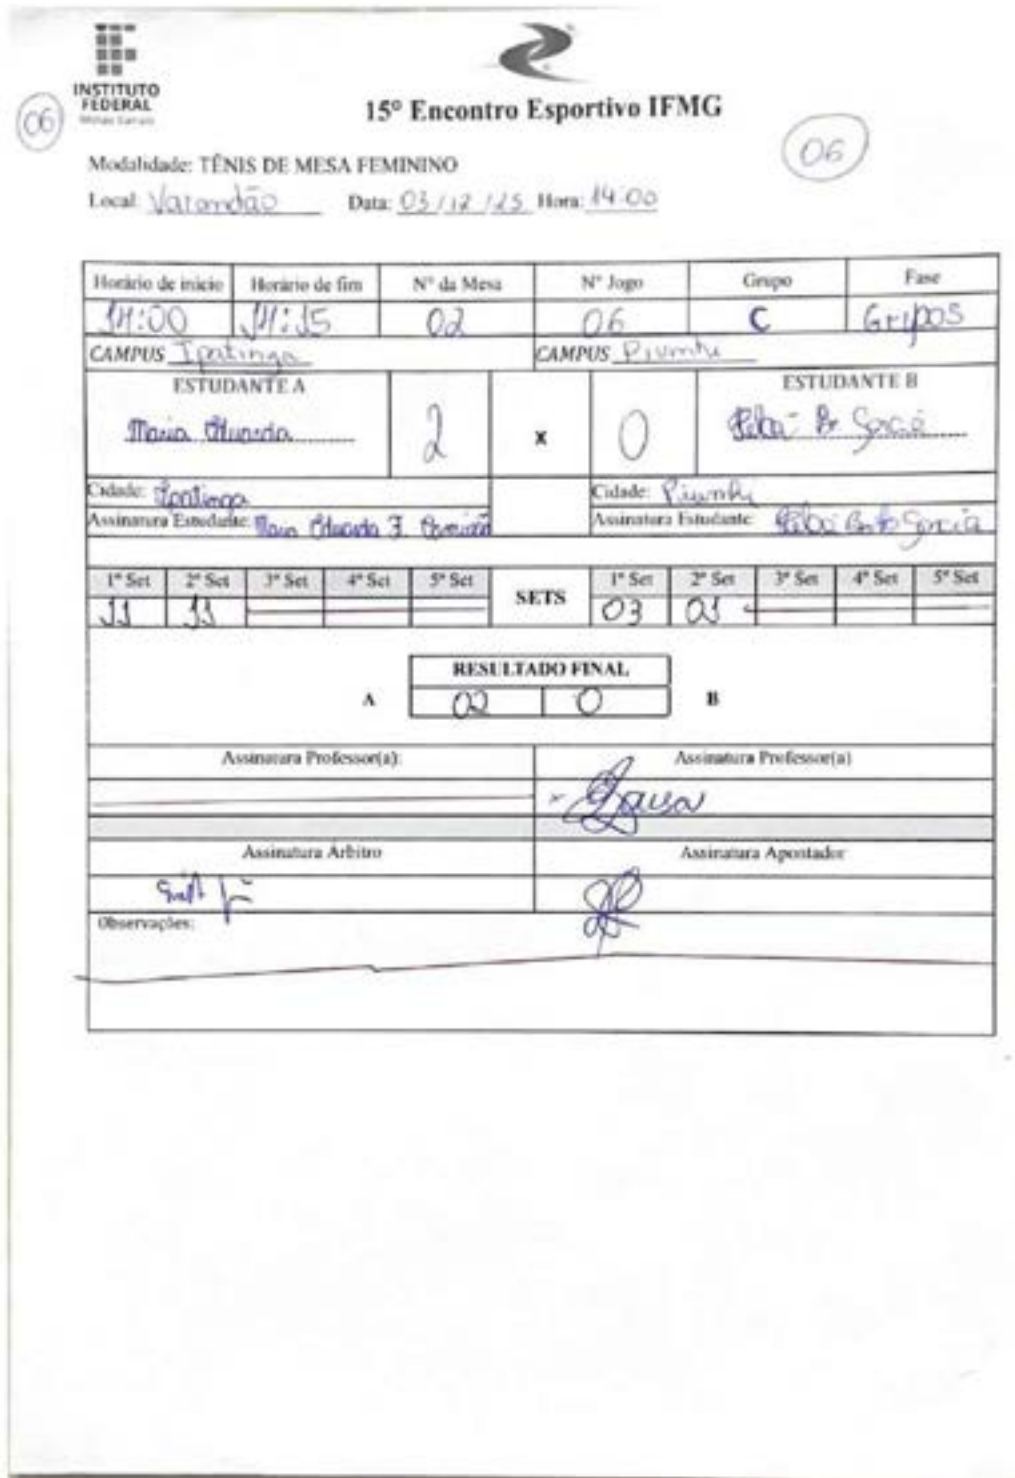 INSTITUTO
FEDERAL
Minas Gerais
06
15º Encontro Esportivo IFMG
06
Modalidade: TÊNIS DE MESA FEMININO
Local: Varandão Data: 03/12/25 Hora: 14:00
Horário de início Horário de fim Nº da Mesa Nº Jogo Grupo Fase
14:00 14:15 02 06 C Grupos
CAMPUS Ipatinga CAMPUS Piumhi
ESTUDANTE A ESTUDANTE B
Maria Eduarda 2 x 0
Cidade: Ipatinga Cidade: Piumhi
Assinatura Estudante: Maria Eduarda F. Assinatura Estudante: Garcia
1º Set 2º Set 3º Set 4º Set 5º Set SETS 1º Set 2º Set 3º Set 4º Set 5º Set
11 11 03 01
RESULTADO FINAL
A 02 0 B
Assinatura Professor(a): Assinatura Professor(a)
Assinatura Árbitro Assinatura Apontador
Observações: